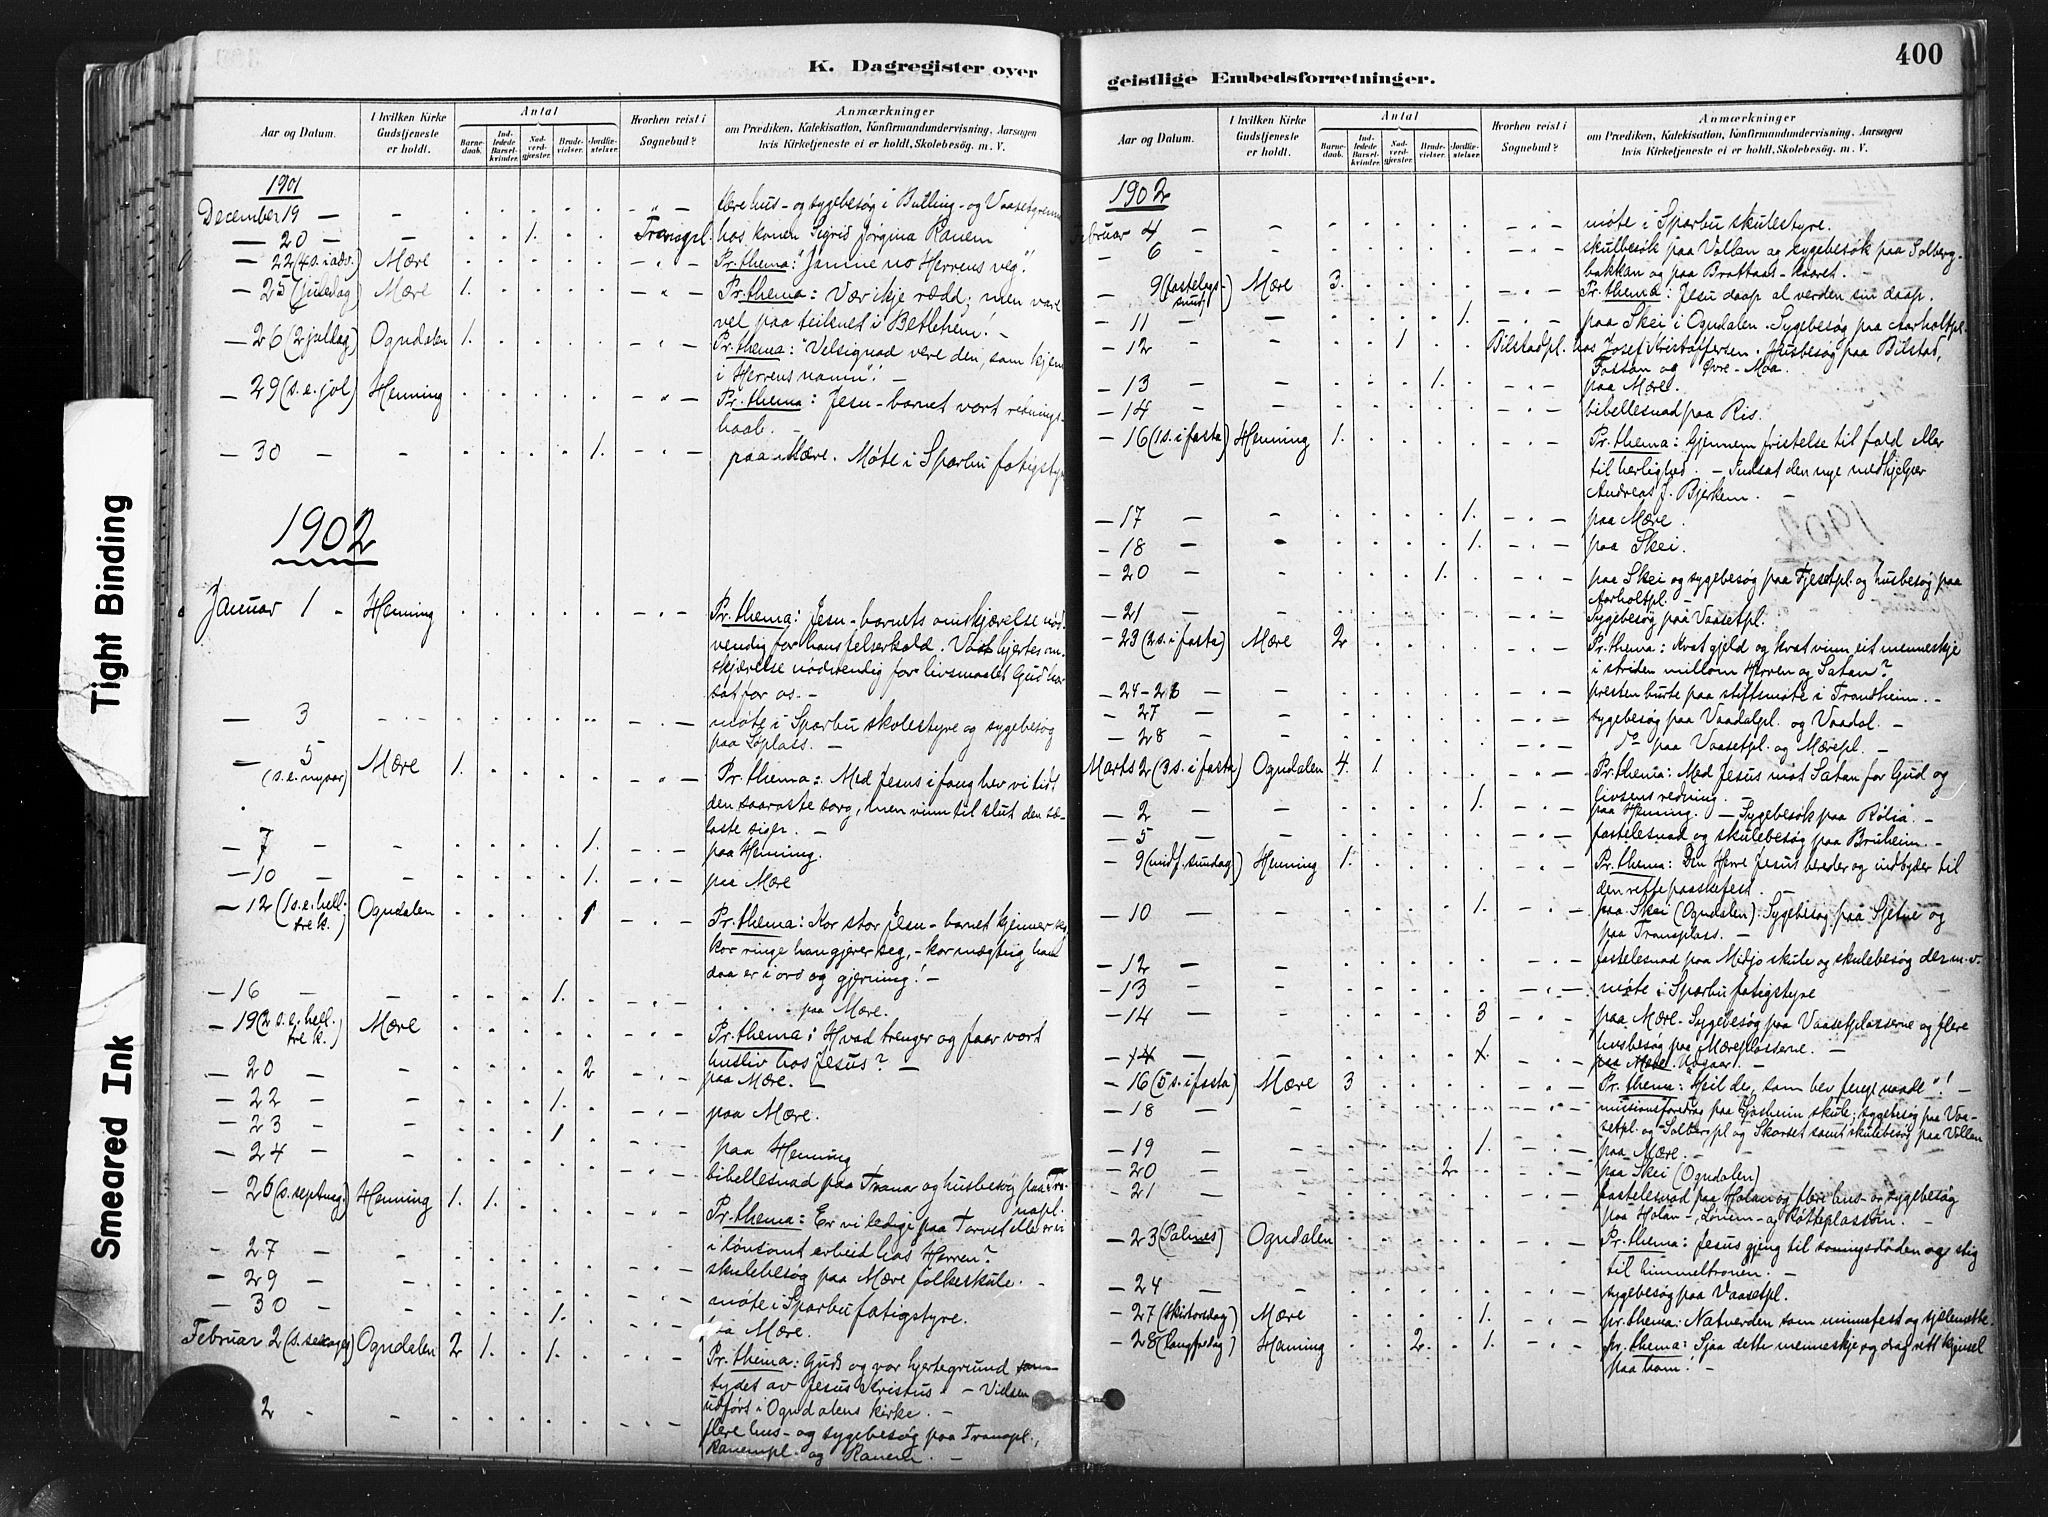 K. Dagregister over
Aar og Datum.
I hvilken Kirke Gudstjeneste er holdt.
Antal
Barne-daab.
Ind-ledede Barsel-kvinder.
Nad-verd-gjester.
Brude-vielser.
Jordfæ-stelser.
Hvorhen reist i Sognebud?
Anmærkninger
om Prædiken, Katekisation, Konfirmandundervisning, Aarsagen
hvis Kirketjeneste ei er holdt, Skolebesøg. m. V.
1901
December 19 - - - " - flere hus- og sygebesøg i Butling- og Vaasetgrenna
- 20 - - 1. Tranapl. hos konen Sigrid Jørgina Ranem
- 22 (4 s. i adv.) Mære - " - Pr. thema: "Jamne no Herrens veg".
- 25 (juledag) Mære 1. - " - Pr. thema: Vær ikje rædd; men vare
vel paa teiknet i Betlehem! -
- 26 (2 juldag) Ogndalen 1. - " - Pr. thema: "Velsignad vere den, som kjem
i Herrens namn"! -
- 29 (s. e. jol) Henning - " - Pr. thema: Jesu-barnet vort rednings-
haab. -
- 30 - - 1. - " - paa Mære. Møte i Sparbu fatigstyre
1902
Januar 1 - Henning Pr. thema: Jesu-barnets omskjærelse nød-
vendig for hans felserkald. Vaart hjertes om-
skjærelse nødvendig for livsmaalet Gud har
sat for os. -
- 3 - - - møte i Sparbu skolestyre og sygebesøg
paa Løplass. -
- 5 (s. e. nyaar) Mære 1. - " - Pr. thema: Med Jesus i fang hev vi tidt
den saaraste sorg, men vinn til slut den sæ-
laste siger. -
- 7 - - 1. - " - paa Henning.
- 10 - - 1. - " - paa Mære
- 12 (1 s. e. hell. tre k.) Ogndalen 1 - " - Pr. thema: Kor stor Jesu-barnet kjenner seg
kor ringe han gjerer seg, - kor mægtug han
daa er i ord og gjerning! -
- 16 - - 1. - " - paa Mære.
- 19 (2 s. e. hell. tre k.) Mære - " - Pr. thema: Hvad trenger og faar vort
husliv hos Jesus? -
- 20 - - 2 - " - paa Mære. -
- 22 - - 1. - " - paa Mære.
- 23 - - 1 - " - paa Henning
- 24 - - - " - bibellesnad paa Trana og husbesøg paa Tra-
napl.
- 26 (s. septuag.) Henning 1. 1. - " - Pr. thema: Er vi ledige paa Torvet eller er vi
i lønsomt arbeid hos Herren?
- 27 - - skulebesøg paa Mære folkeskule. -
- 29 - - møte i Sparbu fatigstyre.
- 30 - - 1. paa Mære.
Februar 2 (s. sexages) Ogndalen 2 1. 1. Pr. thema: Guds og vor hjertegrund
tydet av Jesus Kristus. - Vielsen
udført i Ogndalens kirke. -
2 - - flere hus- og sygebesøg paa Tranapl.,
Ranempl. og Ranem. -
geistlige Embedsforretninger.
400
Aar og Datum.
I hvilken Kirke Gudstjeneste er holdt.
Antal
Barne-daab.
Ind-ledede Barsel-kvinder.
Nad-verd-gjester.
Brude-vielser.
Jordfæ-stelser.
Hvorhen reist i Sognebud?
Anmærkninger
om Prædiken, Katekisation, Konfirmandundervisning, Aarsagen
hvis Kirketjeneste ei er holdt, Skolebesøg. m. V.
1902
Februar 4 - - - " - møte i Sparbu skulestyre.
- 6 - - - " - skulbesøk paa Vollen og sygebesøk paa Solberg-
bakkan og paa
- 9 (fastelags-sund) Mære 3. - " - Pr. thema: Jesu daap al verden sin daap.
- 11 - - 1. - " - paa Skei i Ogndalen. Sygebesøg paa Aarholtpl.
- 12 - - 1 Bilstadpl. hos Josef Kristoffersen. Husbesøg paa Bilstad,
Fossan og Øvre-Moa.
- 13 - - 1. - " - paa Mære.
- 14 - - - " - bibellesnad paa Ris.
- 16 (1 s. i fasta) Henning 1. - " - Pr. thema: Gjennem fristelse til fald eller
til herlighed. - Indsat den nye medhjelper
Andreas J. Bjerkem. -
- 17 - - 1. - " - paa Mære.
- 18 - - 1. - " - paa Skei.
- 20 - - 1. - " - paa Skei og sygebesøg paa Fjesetpl. og husbesøg paa
Aarholtpl. -
- 21 - - - " - Sygebesøg paa Vaasetpl.
- 23 (2 s. i fasta) Mære 2 - " - Pr. thema: Kvat gjeld og kvat vinn eit menneskje
i striden millom Herren og Satan?
- 24-26 - - - " - presten burte paa stiftsmøte i Trondheim. -
- 27 - - - " - sygebesøg paa Vaadalpl. og Vaadal. -
- 28 - - - " - do paa Vaasetpl. og Mærepl. -
Marts 2 (3 s. i fasta) Ogndalen 4. 1. - " - Pr. thema: Med Jesus mot Satan for Gud og
livsens redning. -
- 2 - - 1. - " - paa Henning. - Sygebesøk paa Rølia. -
- 5 - - - " - fastelesnad og skulebesøg paa Bruheim. -
- 9 (midf. sundag) Henning 1. - " - Pr. thema: Den Herre Jesus bereder og indbyder til
den rette paaskefest. -
- 10 - - 1. - " - paa Skei (Ogndalen). Sygebesøg paa Sjetne og
paa Tranaplass. -
- 12 - - - " - fastelesnad paa Midjo skule og skulebesøg der m. v.
- 13 - - - " - møte i Sparbu fatigstyre
- 14 - - 3 - " - paa Mære. Sygebesøg paa Vaasetplasserne og flere
husbesøg paa Mæreplasserne. -
- 14 - - 1. - " - paa Mære.
- 16 (5 s. i fasta) Mære 3 - " - Pr. thema: "Heil de, som hev fengt naade"! -
- 18 - - - " - missionsforedrag paa skule; sygebesøg paa Vaa-
setpl. og Solbergpl og Skarset samt skulebesøg paa Vollan
- 19 - - 1. - " - paa Mære. -
- 20 - - 2 - " - paa Skei (Ogndalen)
- 21 - - - " - fastelesnad paa Holan og flere hus- og sygebesøg
paa Holan-, Lønem- og Røtteplassom. -
- 23 (Palmes) Ogndalen - " - Pr. thema: Jesus gjeng til soningsdøden og stig
til himmeltronen. -
- 24 - - - " - sygebesøg paa Vaasetpl.
- 27 (skirtorsdag) Mære 1. - " - pr. thema: Natverden som minnefest og sjælemette.
- 28 (langfredag) Henning 2. 1. - " - pr. thema: Sjaa dette menneskje og drag rett kjensel
paa ham! -
Tight Binding
Smeared Ink